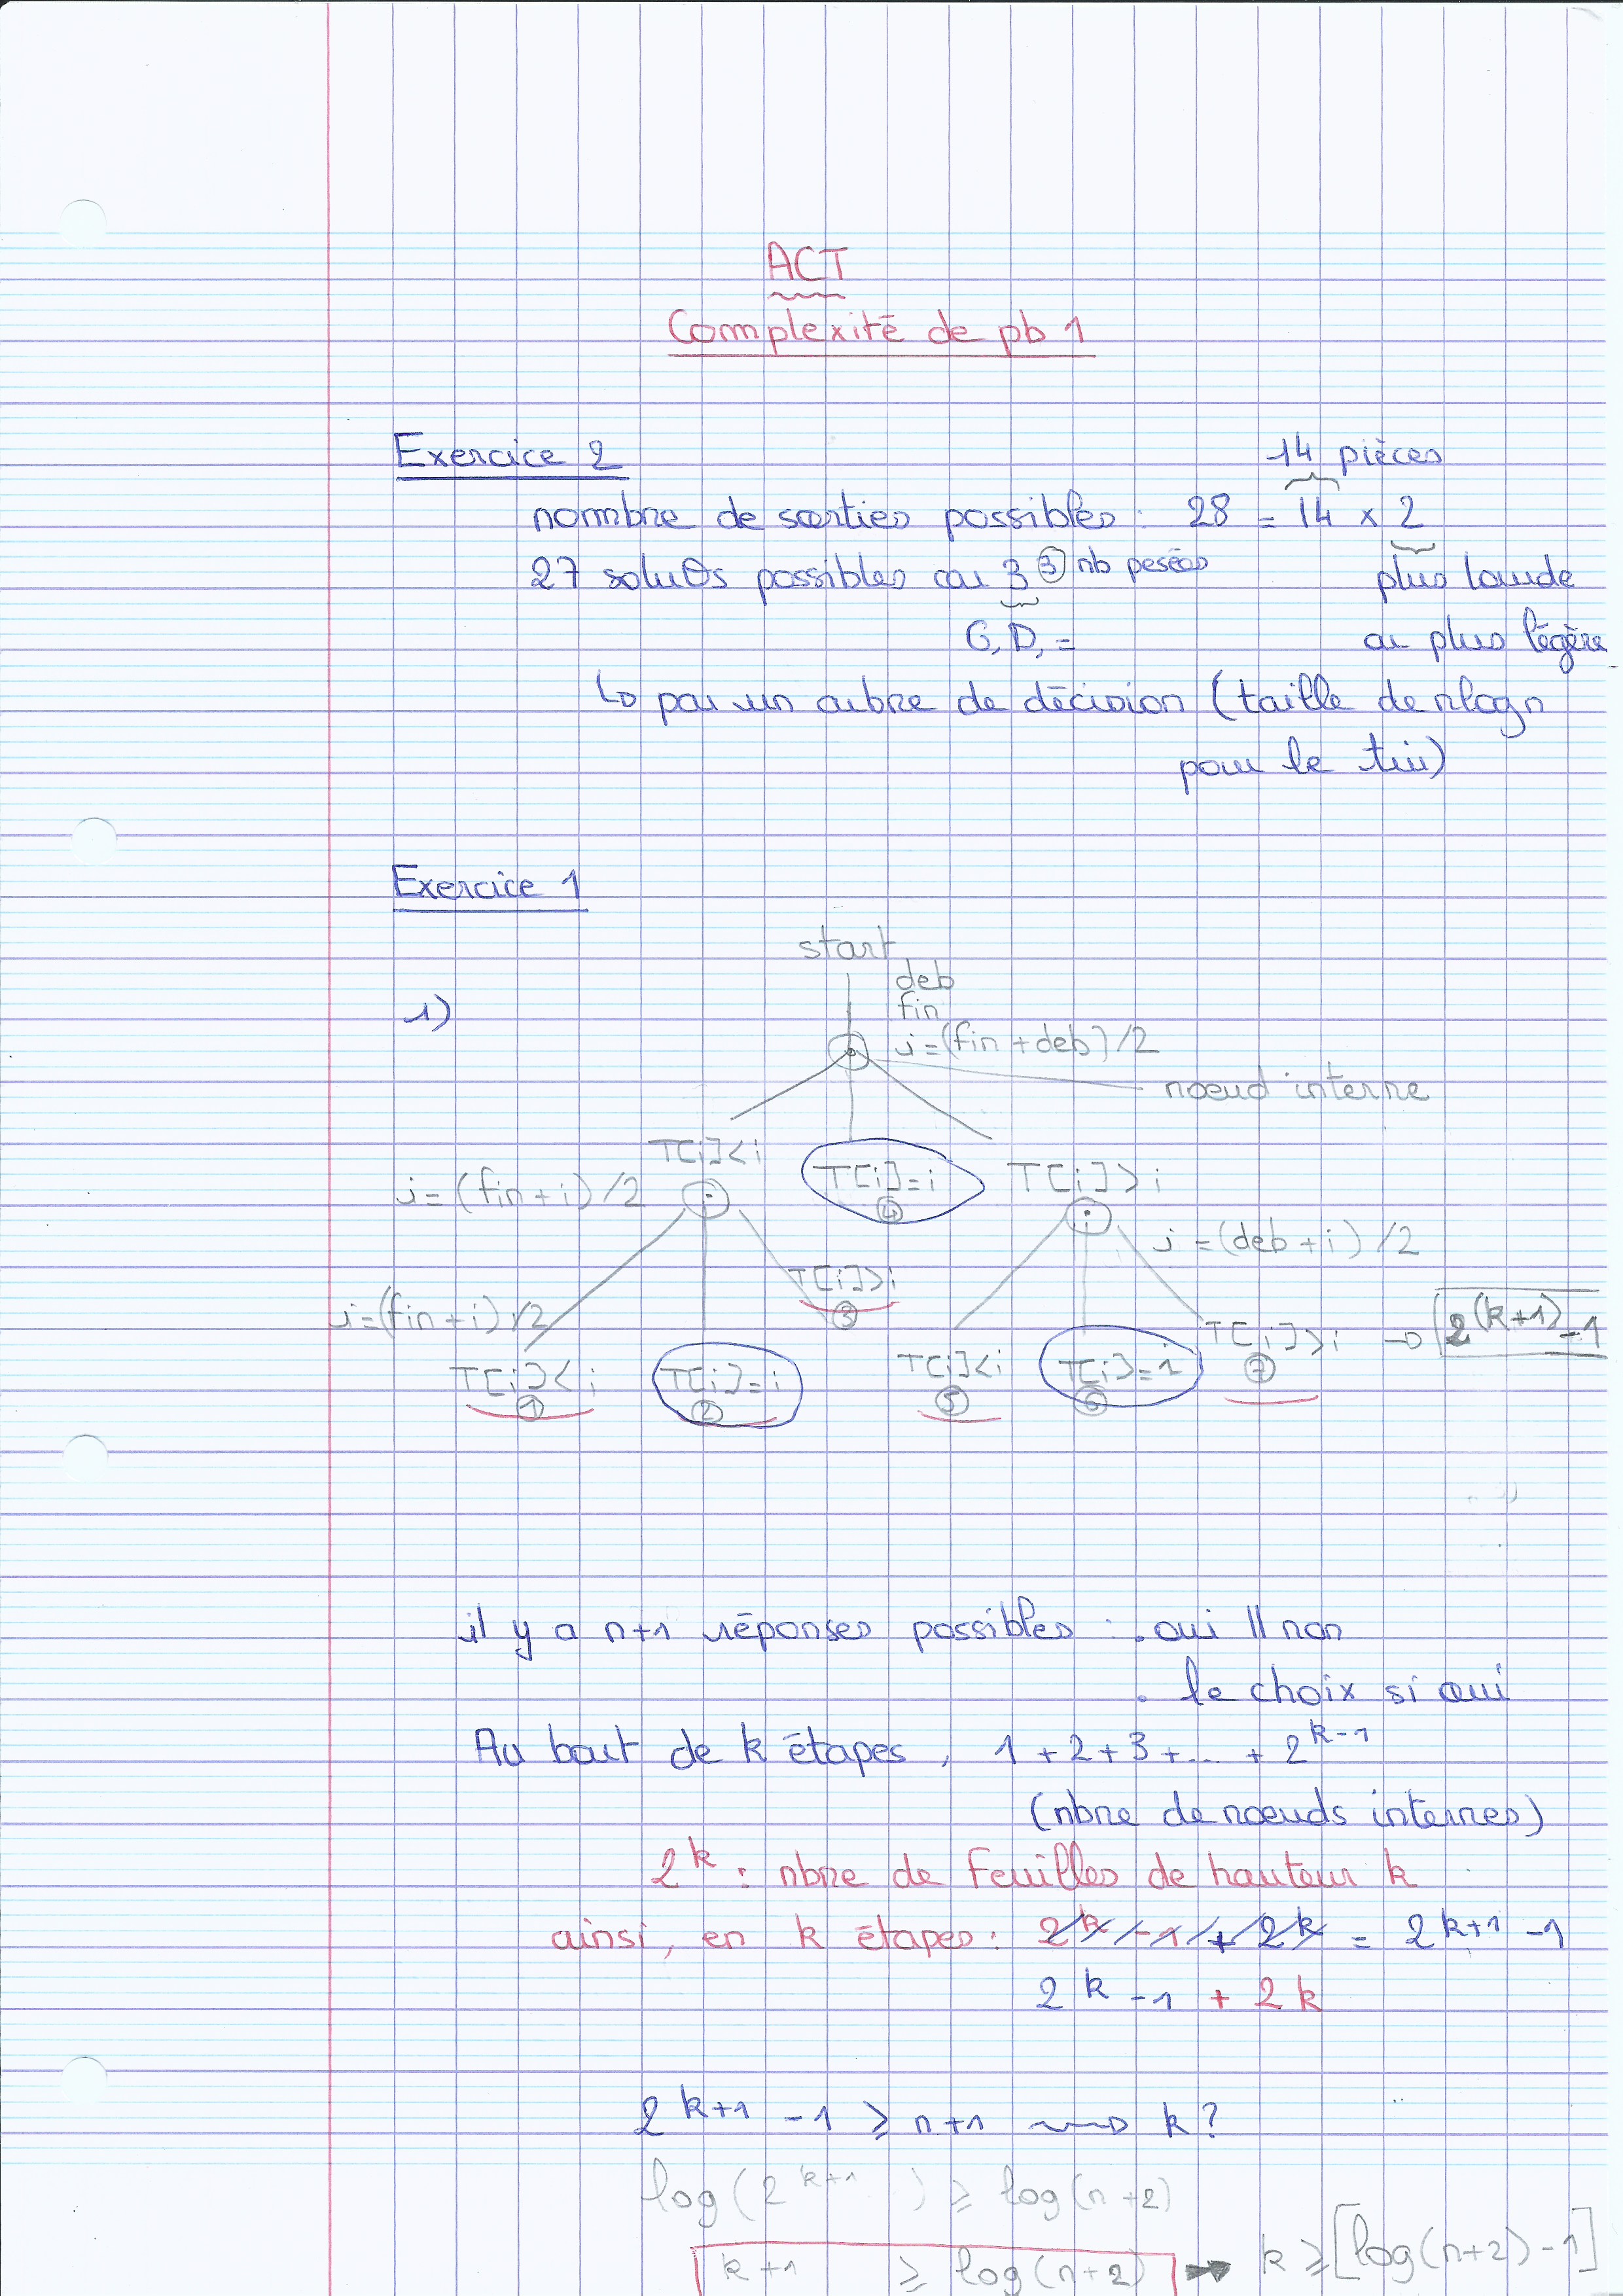 ACT
Complexité de pb 1
Exercice 2
14 pièces
nombre de sorties possibles : 28 = 14 x 2
27 soluθs possibles car 3 ③ nb pesées
plus lourde
G, D, =
ou plus légère
↳ par un arbre de décision (taille de nlogn
pour le tri)
Exercice 1
start
deb
fin
1)
i = (fin + deb) / 2
noeud interne
T[i] < i
T[i] = i
④
T[i] > i
i = (fin + i) / 2
i = (deb + i) / 2
T[i] > i
③
i = (fin + i) / 2
T[i] < i
①
T[i] = i
②
T[i] < i
⑤
T[i] = i
⑥
T[i] > i
⑦
→ 2^(k+1) - 1
il y a n+1 réponses possibles : . oui || non
. le choix si oui
Au bout de k étapes, 1 + 2 + 3 + ... + 2^k-1
(nbre de noeuds internes)
2^k : nbre de feuilles de hauteur k
ainsi, en k étapes : 2^k - 1 + 2^k = 2^k+1 - 1
2^k - 1 + 2k
2^k+1 - 1 ≥ n+1 ⟿ k ?
log(2^k+1 ) ≥ log(n+2)
k+1 ≥ log(n+2) → k ≥ [log(n+2) - 1]